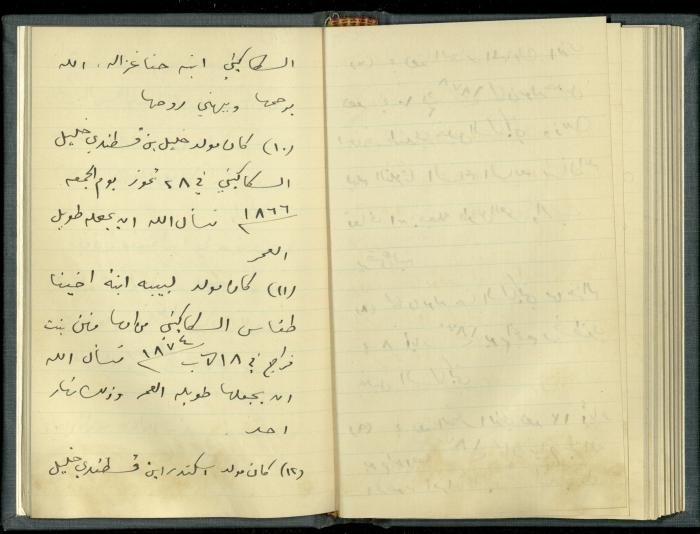 السكاكيني ابنة حنا غزاله، الله
يرحمها ويهني روحها
(١٠) كان مولد خليل بن قسطندي خليل
السكاكيني في ٢٨ تموز يوم الجمعه
١٨٦٦ نسأل الله ان يجعله طويل
العمر
(١١) كان مولد لبيبه ابنة اخينا
طناس السكاكيني من امها منن بنت
فراج في ١٨ آب ١٨٧٤ نسأل الله
ان يجعلها طويله العمر وذلك نهار
احد.
(١٢) كان مولد اسكندر ابن قسطندي خليل